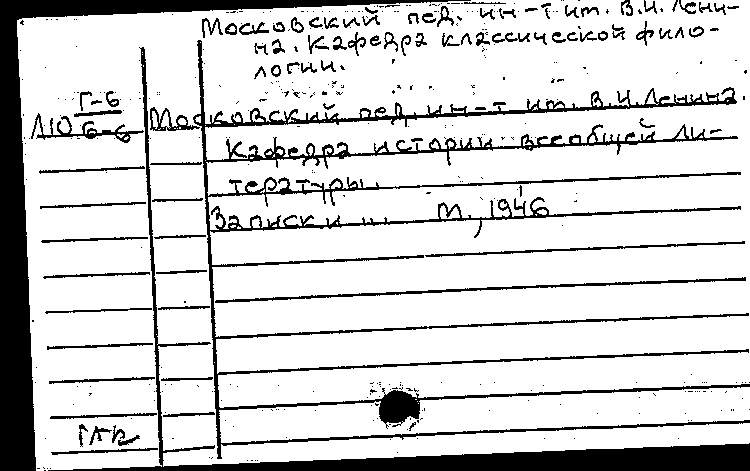 Московский пед. ин-т им. В.И. Лени-
на. Кафедра классической фило-
логии.
Г-6
Л10 Б-6 Московский пед. ин-т им. В.И. Ленина.
Кафедра истории всеобщей ли-
тературы.
Записки ... М., 1946